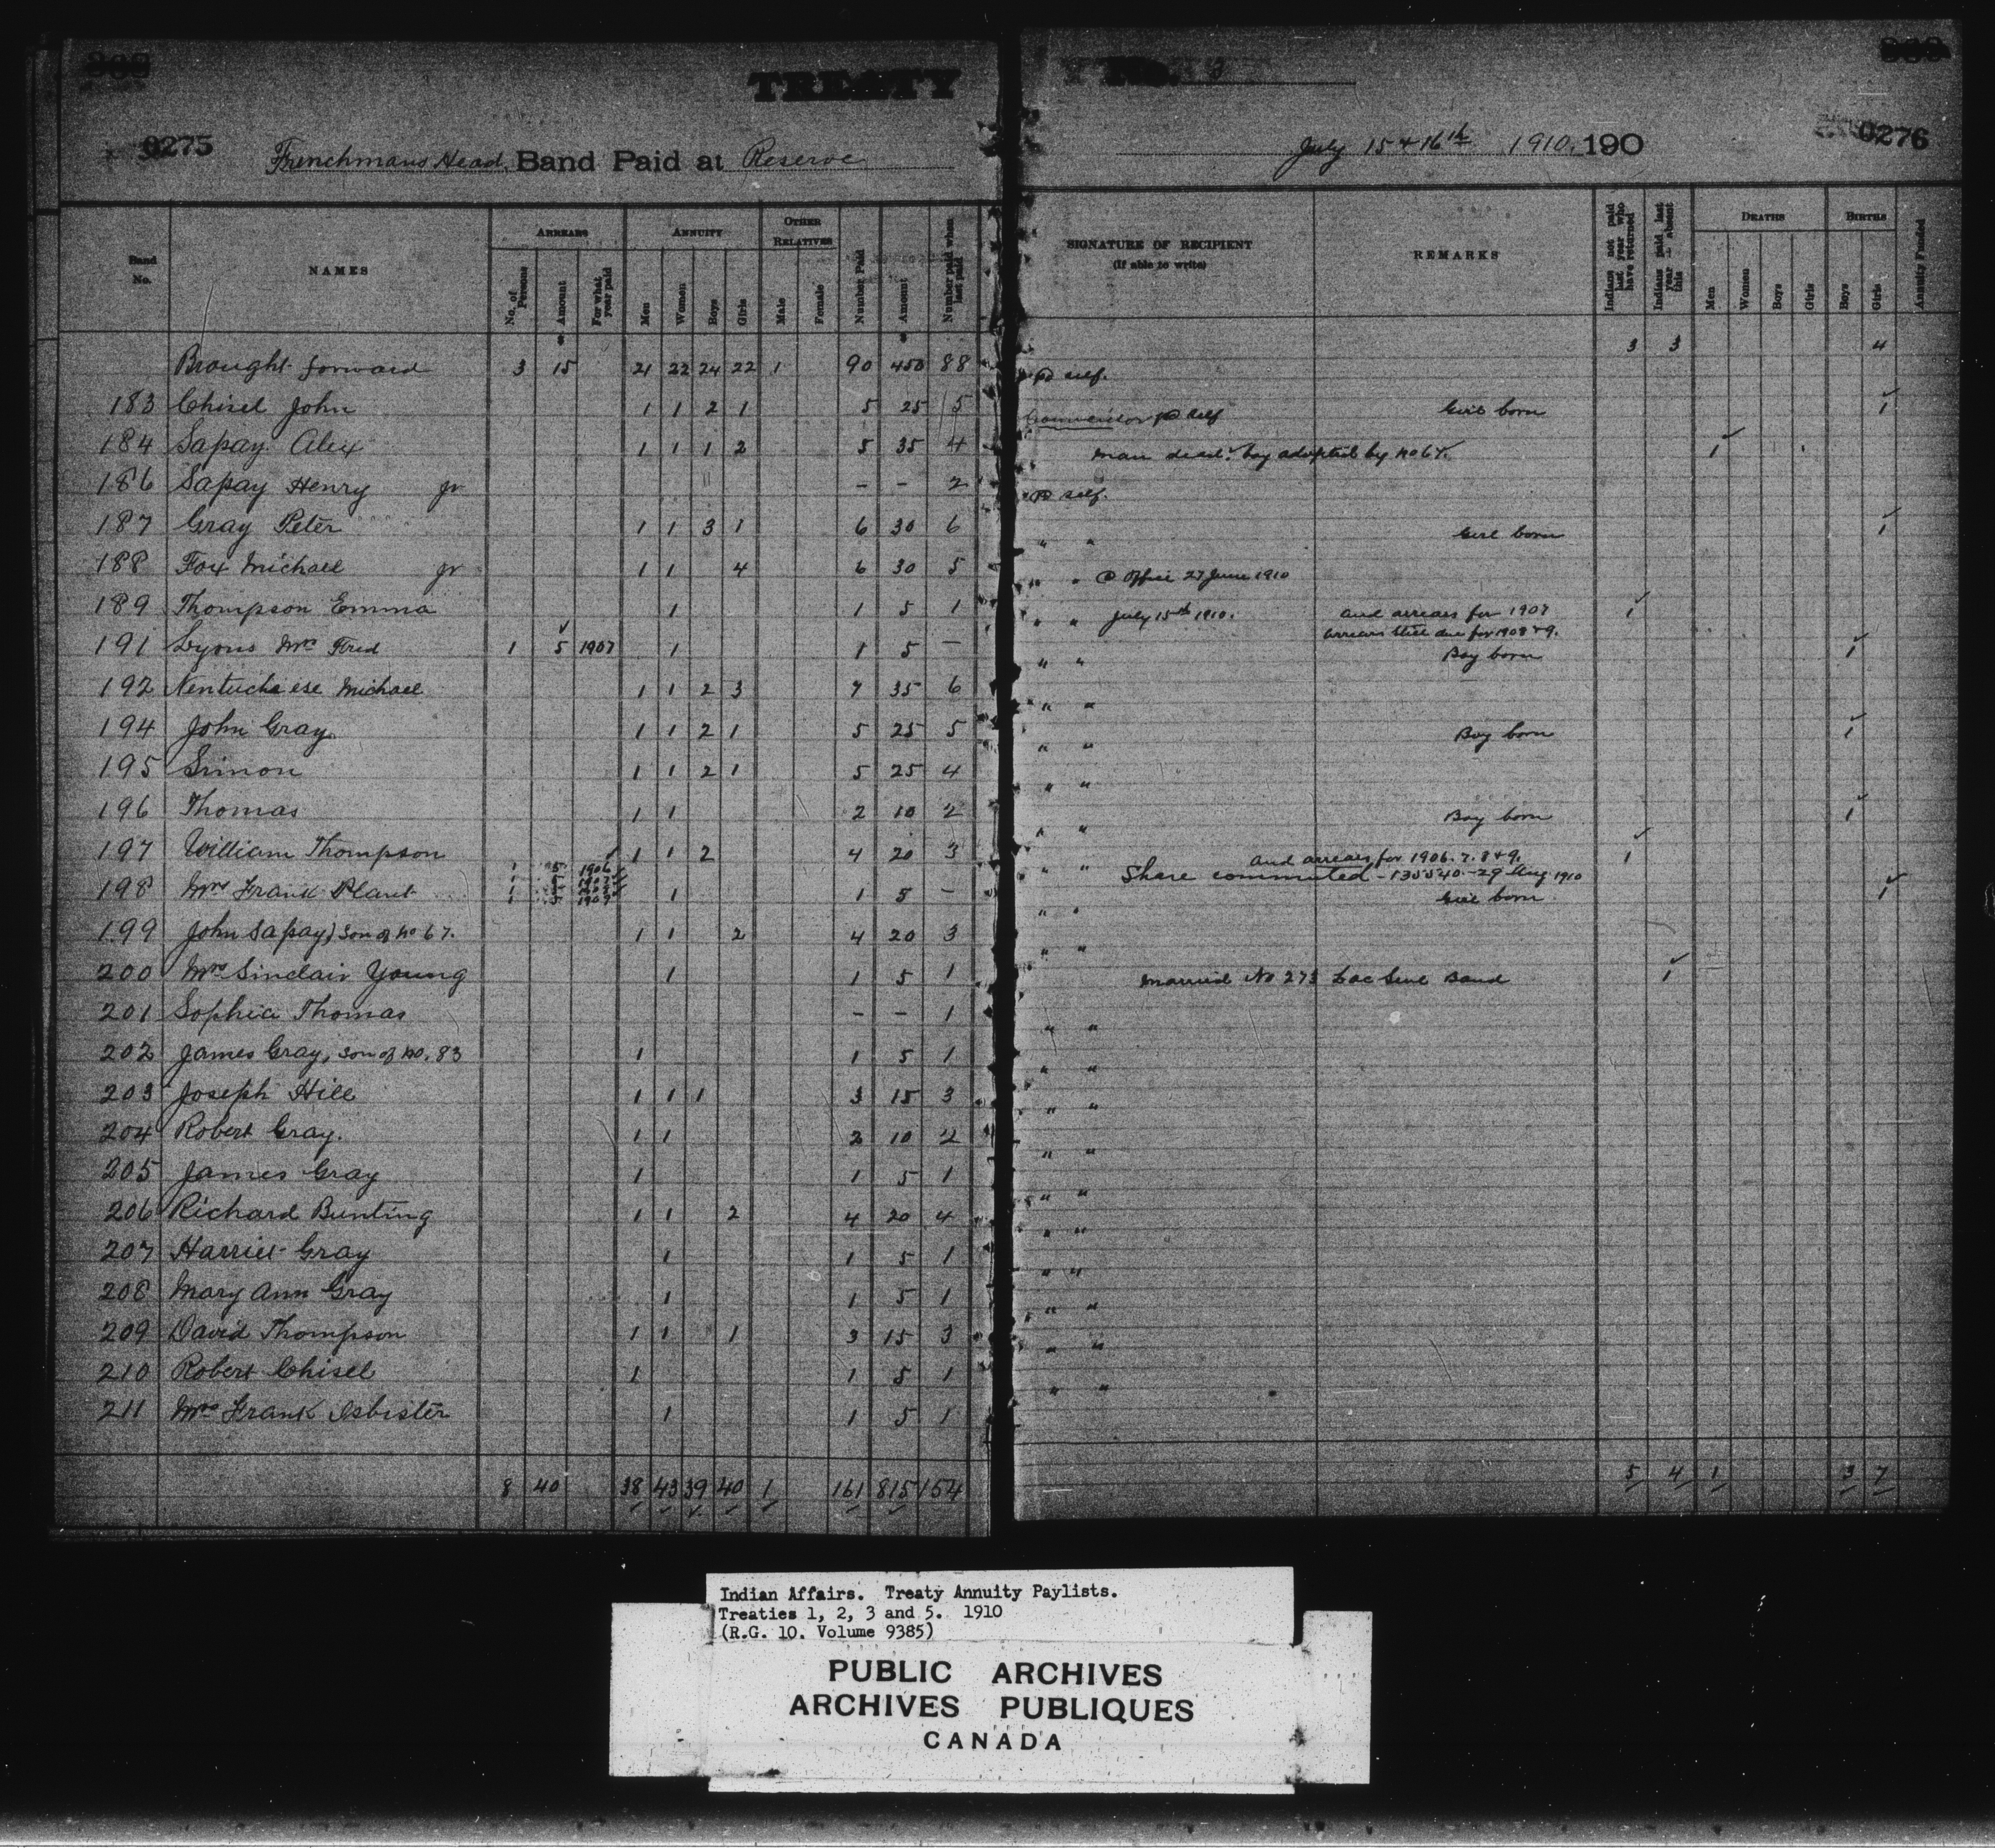 TREATY No. 3
0275
Frenchmans Head Band Paid at Reserve
July 15 & 16th 1910 190
0276
Band No. NAMES ARREARS No. of Persons Amount For what year paid ANNUITY Men Women Boys Girls OTHER RELATIVES Male Female Number Paid Amount Number paid when last paid
SIGNATURE OF RECIPIENT (If able to write) REMARKS Indians not paid last year who have returned Indians paid last year – absent this DEATHS Men Women Boys Girls BIRTHS Boys Girls Annuity Funded
Brought forward 3 15 21 22 24 22 1 90 450 88 3 3 4
183 Chisel John 1 1 2 1 5 25 5 self.
184 Sapay Alex 1 1 1 2 5 35 4 Councillor self Girl born 1
186 Sapay Henry Jr – – 2 man dead. boy adopted by no 67. 1
187 Gray Peter 1 1 3 1 6 30 6 self.
188 Fox Michael Jr 1 1 4 6 30 5 " " Girl born 1
189 Thompson Emma 1 1 5 1 " " Office 27 June 1910
191 Lyons Mrs Fred 1 5 1907 1 1 5 – " " July 15th 1910. and arrears for 1907 1
arrears still due for 1908 & 9.
192 Kentucheese Michael 1 1 2 3 7 35 6 " " Boy born 1
194 John Gray 1 1 2 1 5 25 5 " "
195 Simon 1 1 2 1 5 25 4 " " Boy born 1
196 Thomas 1 1 2 10 2 " "
197 William Thompson 1 1 2 4 20 3 " " Boy born 1
198 Mrs Frank Plant 1 5 1906 1 1 5 – " " and arrears for 1906. 7. 8 & 9. 1
Share commuted – 135540 – 29 Aug 1910
199 John Sapay, son of no 67. 1 1 2 4 20 3 " " Girl born 1
200 Mrs Sinclair Young 1 1 5 1 " "
201 Sophia Thomas – – 1 Married No 273 Lac Seul Band 1
202 James Gray, son of no. 83 1 1 5 1 " "
203 Joseph Hill 1 1 1 3 15 3 " "
204 Robert Gray. 1 1 2 10 2 " "
205 James Gray 1 1 5 1 " "
206 Richard Bunting 1 1 2 4 20 4 " "
207 Harriet Gray 1 1 5 1 " "
208 Mary Ann Gray 1 1 5 1 " "
209 David Thompson 1 1 1 3 15 3 " "
210 Robert Chisel 1 1 5 1 " "
211 Mrs Frank Isbister 1 1 5 1 " "
8 40 38 43 39 40 1 161 815 154 5 4 1 3 7
Indian Affairs. Treaty Annuity Paylists.
Treaties 1, 2, 3 and 5. 1910
(R.G. 10. Volume 9385)
PUBLIC ARCHIVES
ARCHIVES PUBLIQUES
CANADA